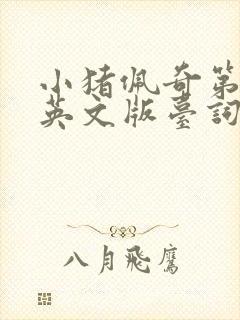 小猪佩奇第
英文版臺詞
八月飛鷹